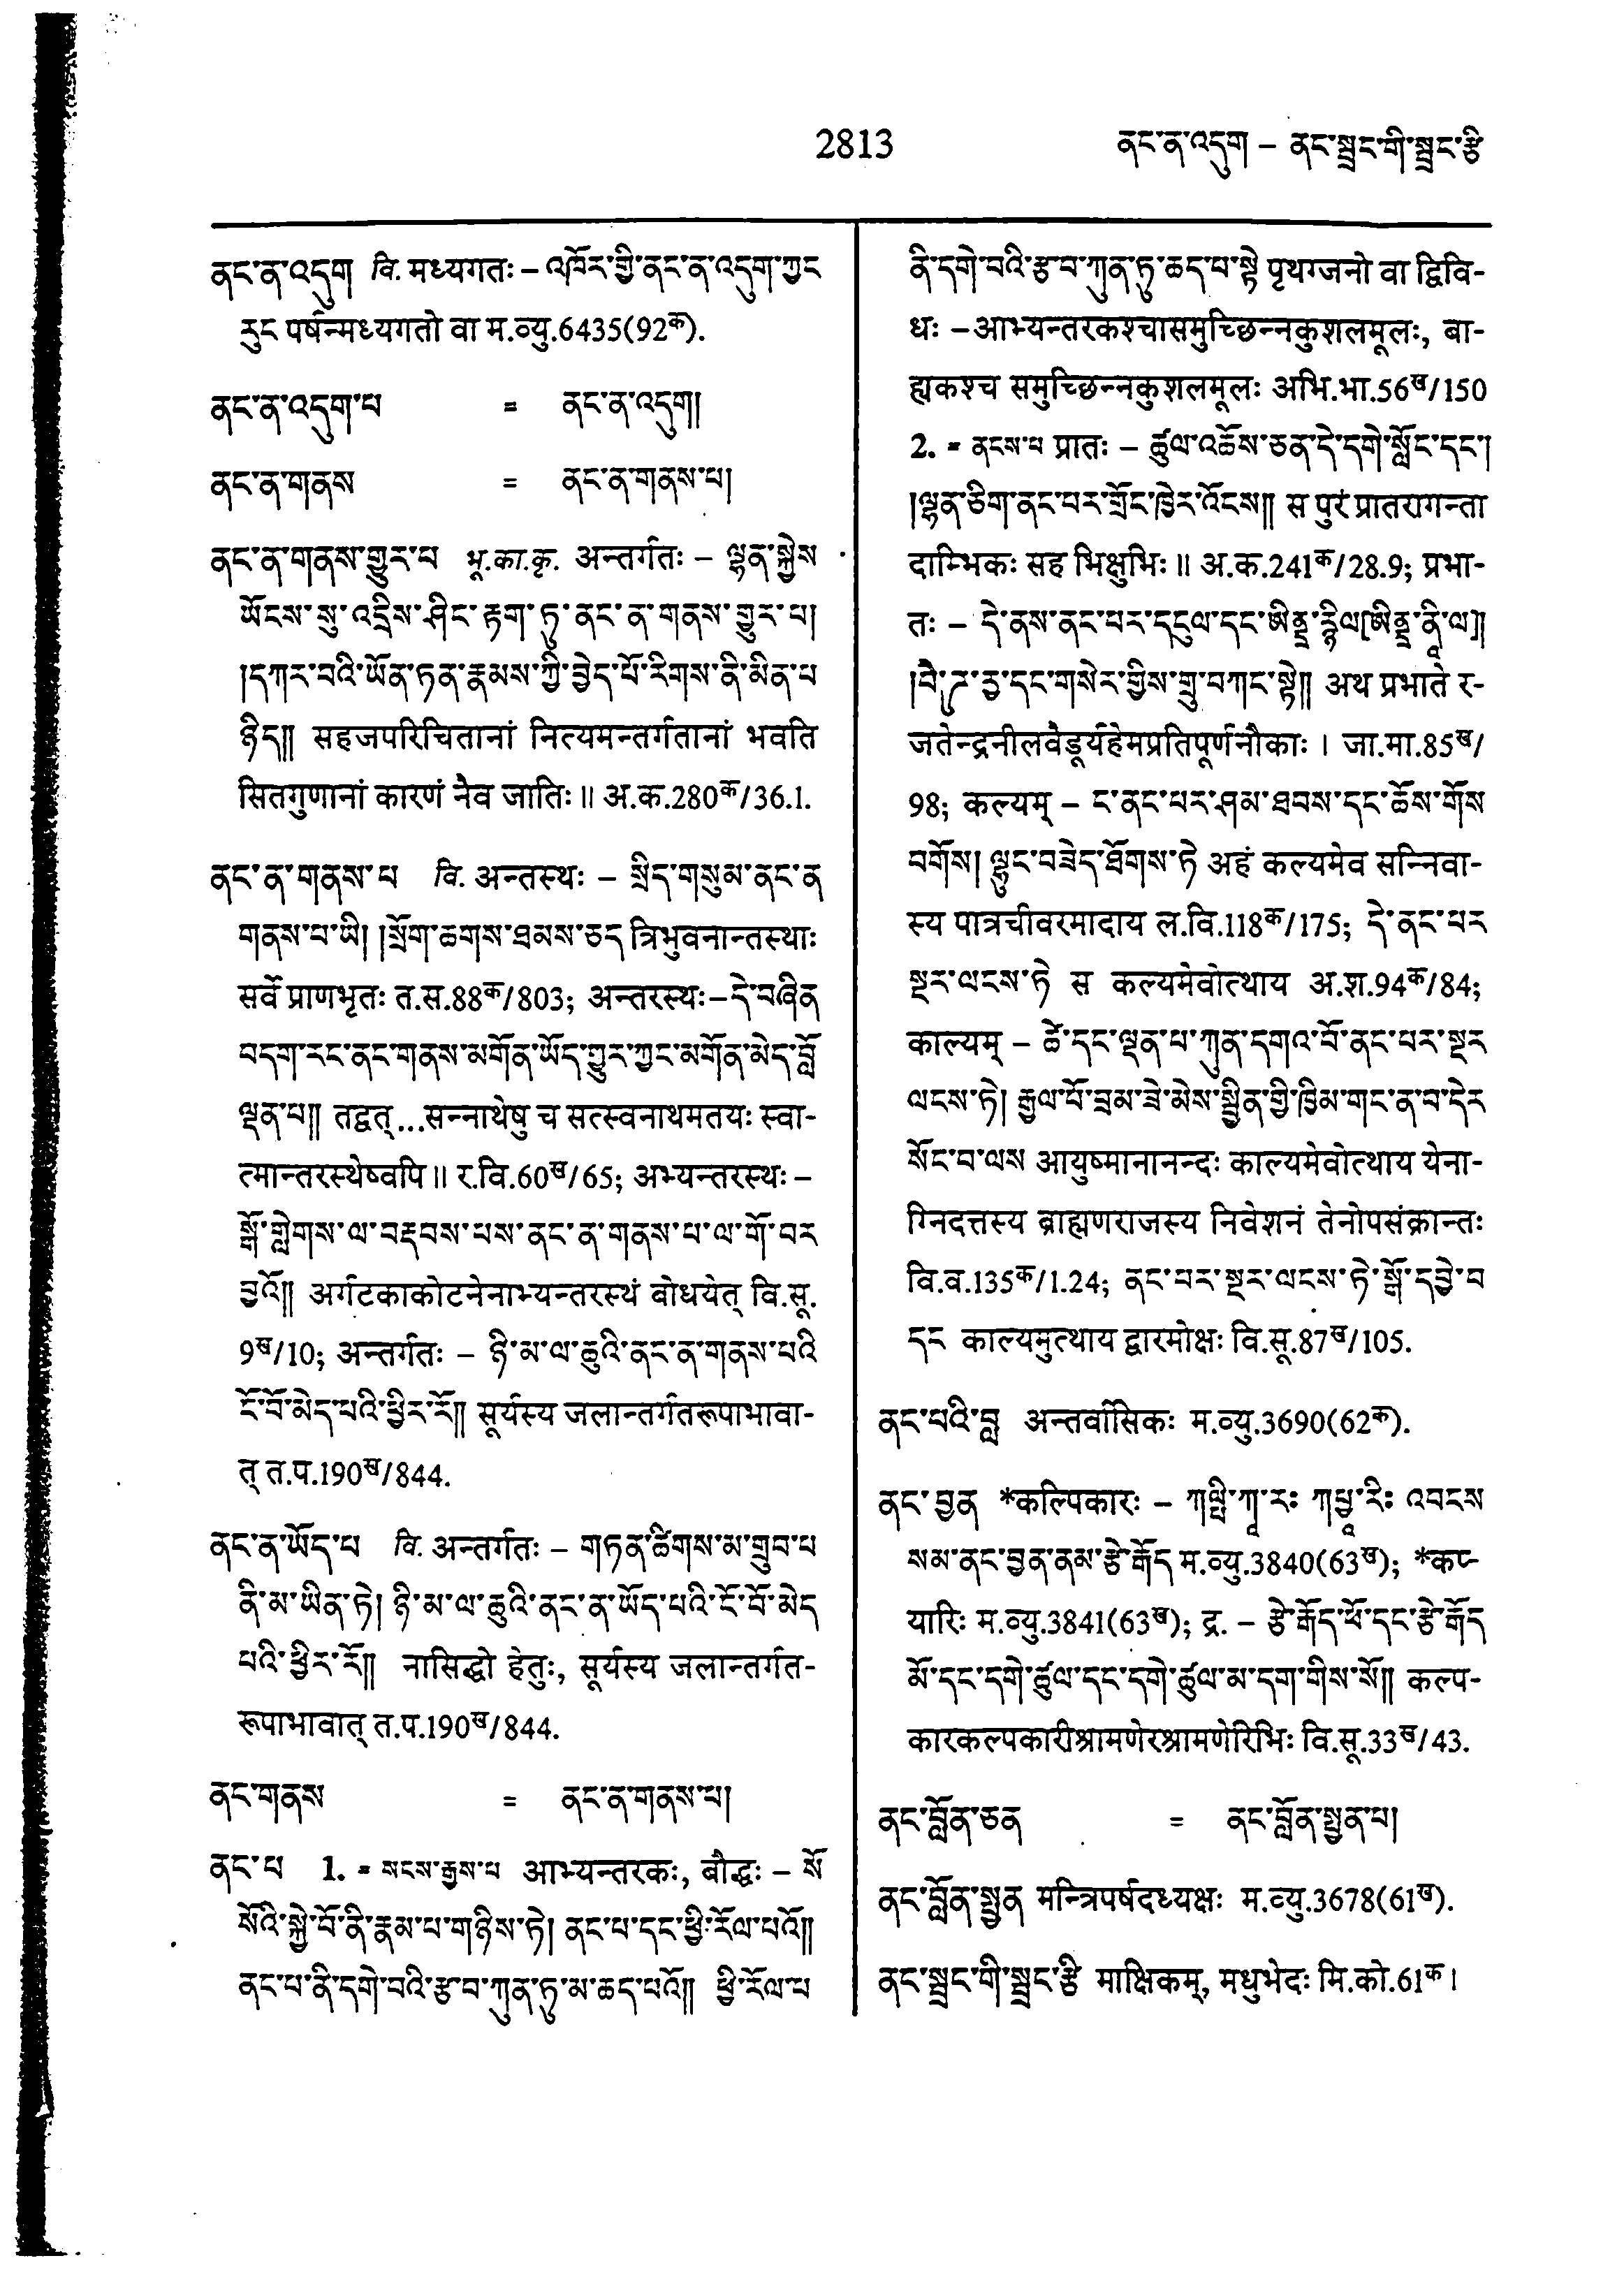 2813
ནང་ན་འདུག – ནང་སྦྲང་གི་སྦྲང་རྩི
ནང་ན་འདུག वि. मध्यगतः – འཁོར་གྱི་ནང་ན་འདུག་ཀྱང
རུང पर्षन्मध्यगतो वा म.व्यु.6435(92क).
ནང་ན་འདུག་པ = ནང་ན་འདུག།
ནང་ན་གནས = ནང་ན་གནས་པ།
ནང་ན་གནས་གྱུར་པ भू.का.कृ. अन्तर्गतः – ལྷན་སྐྱེས
ཡོངས་སུ་འདྲིས་ཤིང་རྟག་ཏུ་ནང་ན་གནས་གྱུར་པ།
།དཀར་བའི་ཡོན་ཏན་རྣམས་ཀྱི་བྱེད་པོ་རིགས་ནི་མིན་པ
ཉིད།། सहजपरिचितानां नित्यमन्तर्गतानां भवति
सितगुणानां कारणं नैव जातिः ॥ अ.क.280क/36.1.
ནང་ན་གནས་པ वि. अन्तस्थः – སྲིད་གསུམ་ནང་ན
གནས་པ་ཡི། །སྲོག་ཆགས་ཐམས་ཅད त्रिभुवनान्तस्थाः
सर्वे प्राणभृतः त.स.88क/803; अन्तरस्थः – དེ་བཞིན
བདག་རང་ནང་གནས་མགོན་ཡོད་ཀྱུར་ཀྱང་མགོན་མེད་བློ
ལྡན་པ།། तद्वत्...सन्नाथेषु च सत्स्वनाथमतयः स्वा-
त्मान्तरस्थेष्वपि ॥ र.वि.60ख/65; अभ्यन्तरस्थः –
སྒོ་གླེགས་ལ་བརྡབས་པས་ནང་ན་གནས་པ་ལ་གོ་བར
བྱའོ།། अर्गटकाकोटनेनाभ्यन्तरस्थं बोधयेत् वि.सू.
9ख/10; अन्तर्गतः – ཉི་མ་ལ་ཆུའི་ནང་ན་གནས་པའི
ངོ་བོ་མེད་པའི་ཕྱིར་རོ།། सूर्यस्य जलान्तर्गतरूपाभावा-
त् त.प.190ख/844.
ནང་ན་ཡོད་པ वि. अन्तर्गतः – གཏན་ཚིགས་མ་གྲུབ་པ
ནི་མ་ཡིན་ཏེ། ཉི་མ་ལ་ཆུའི་ནང་ན་ཡོད་པའི་ངོ་བོ་མེད
པའི་ཕྱིར་རོ།། नासिद्धो हेतुः, सूर्यस्य जलान्तर्गत-
रूपाभावात् त.प.190ख/844.
ནང་གནས = ནང་ན་གནས་པ།
ནང་པ 1. = སངས་རྒྱས་པ आभ्यन्तरकः, बौद्धः – སོ
སོའི་སྐྱེ་བོ་ནི་རྣམ་པ་གཉིས་ཏེ། ནང་པ་དང་ཕྱི་རོལ་པའོ།།
ནང་པ་ནི་དགེ་བའི་རྩ་བ་ཀུན་ཏུ་མ་ཆད་པའོ།། ཕྱི་རོལ་པ
ནི་དགེ་བའི་རྩ་བ་ཀུན་ཏུ་ཆད་པ་སྟེ पृथग्जनो वा द्विवि-
धः – आभ्यन्तरकश्चासमुच्छिन्नकुशलमूलः, बा-
ह्यकश्च समुच्छिन्नकुशलमूलः अभि.भा.56ख/150
2. = ནངས་པ प्रातः – ཚུལ་འཆོས་ཅན་དེ་དགེ་སློང་དང་།
།ལྷན་ཅིག་ནང་པར་གྲོང་ཁྱེར་འོངས།། स पुरं प्रातरागन्ता
दाम्भिकः सह भिक्षुभिः ॥ अ.क.241क/28.9; प्रभा-
तः – དེ་ནས་ནང་པར་དངུལ་དང་ཨིནྡྲ་རྙིལ(ཨིནྡྲ་ནཱི་ལ)།།
།བཻ་ཌཱུ་རྱ་དང་གསེར་གྱིས་གྲུ་བཀང་སྟེ།། अथ प्रभाते र-
जतेन्द्रनीलवैडूर्यहेमप्रतिपूर्णनौकाः । जा.मा.85ख/
98; कल्यम् – ང་ནང་པར་ཤམ་ཐབས་དང་ཆོས་གོས
བགོས། ལྷུང་བཟེད་ཐོགས་ཏེ अहं कल्यमेव सन्निवा-
स्य पात्रचीवरमादाय ल.वि.118क/175; དེ་ནང་པར
སྔར་ལངས་ཏེ स कल्यमेवोत्थाय अ.श.94क/84;
काल्यम् – ཚེ་དང་ལྡན་པ་ཀུན་དགའ་བོ་ནང་པར་སྔར
ལངས་ཏེ། རྒྱལ་པོ་བྲམ་ཟེ་མེས་སྦྱིན་གྱི་ཁྱིམ་གང་ན་བ་དེར
སོང་བ་ལས आयुष्मानानन्दः काल्यमेवोत्थाय येना-
ग्निदत्तस्य ब्राह्मणराजस्य निवेशनं तेनोपसंक्रान्तः
वि.व.135क/1.24; ནང་པར་སྔར་ལངས་ཏེ་སྒོ་དབྱེ་བ
དང काल्यमुत्थाय द्वारमोक्षः वि.सू.87ख/105.
ནང་པའི་བླ अन्तर्वासिकः म.व्यु.3690(62क).
ནང་བྱན *कल्पिकारः – ཀལྤི་ཀཱ་རཿ ཀཔྱཱ་རིཿ འབངས
སམ་ནང་བྱན་ནམ་རྩེ་རྒོད म.व्यु.3840(63ख); *कप्-
यारिः म.व्यु.3841(63ख); द्र. – རྩེ་རྒོད་ཕོ་དང་རྩེ་རྒོད
མོ་དང་དགེ་ཚུལ་དང་དགེ་ཚུལ་མ་དག་གིས་སོ།། कल्प-
कारकल्पकारीश्रामणेरश्रामणेरिभिः वि.सू.33ख/43.
ནང་བློན་ཅན = ནང་བློན་སྤྱན་པ།
ནང་བློན་སྤྱན मन्त्रिपर्षदध्यक्षः म.व्यु.3678(61ख).
ནང་སྦྲང་གི་སྦྲང་རྩི माक्षिकम्, मधुभेदः मि.को.61क।